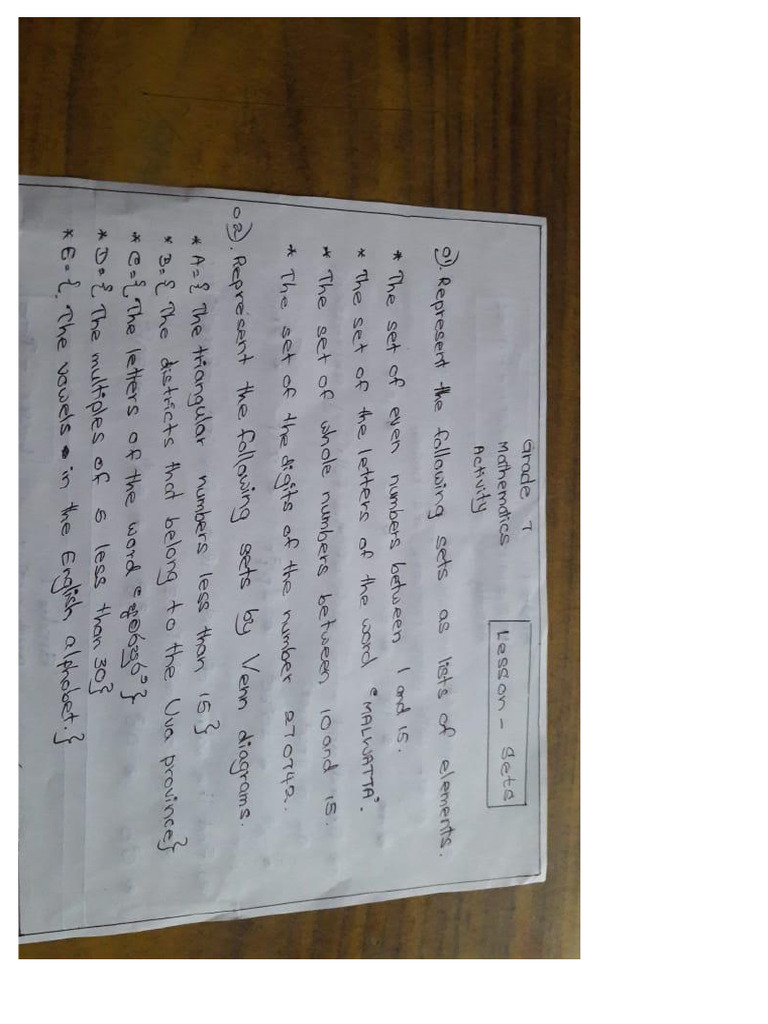 Grade 7
Mathematics
Activity
Lesson - Sets
01). Represent the following sets as lists of elements.
* The set of even numbers between 1 and 15.
* The set of the letters of the word "MALWATTA".
* The set of whole numbers between 10 and 15.
* The set of the digits of the number 270742.
02). Represent the following sets by Venn diagrams.
* A = { The triangular numbers less than 15 }
* B = { The districts that belong to the Uva province}
* C = { The letters of the word " "}
* D = { The multiples of 5 less than 30}
* E = { The vowels in the English alphabet. }